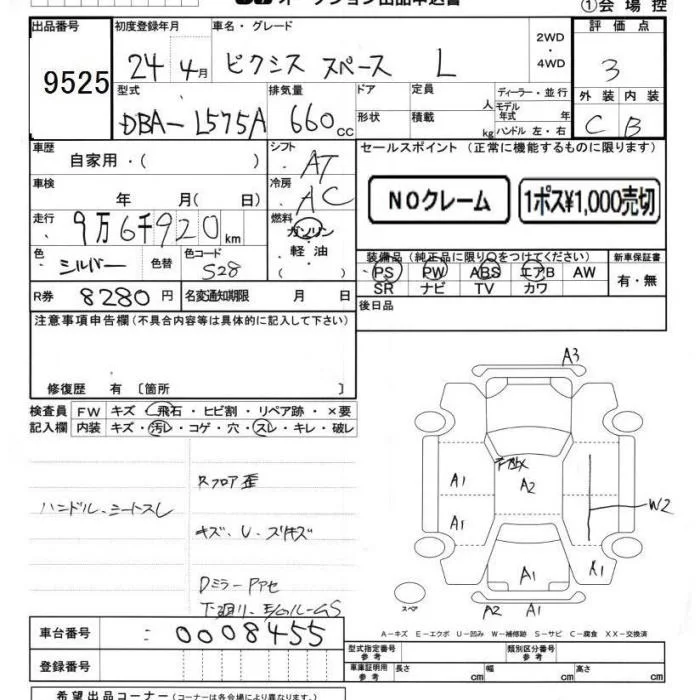 オークション出品申込書
①会場控
出品番号 初度登録年月 車名・グレード 評価点
9525 24年4月 ピクシス スペース L 2WD ・ 4WD 3
型式 排気量 ドア 定員 ディーラー・並行 外装 内装
DBA-L575A 660cc 形状 積載 人 kg モデル年式 年 ハンドル 左・右 C B
車歴 シフト セールスポイント (正常に機能するものに限ります)
自家用・( ) AT
車検 冷房 NOクレーム 1ポス¥1,000売切
年 月( 日) AC
走行 燃料
9万6千920km ガソリン・軽油 ( )
色 色替 色コード 装備品(純正品に限り○をつけてください) 新車保証書
シルバー S28 PS PW ABS エアB AW 有・無
SR ナビ TV カワ
R券 8280円 名変通知期限 月 日 後日品
注意事項申告欄(不具合内容等は具体的に記入して下さい)
修復歴 有 〔箇所 〕
検査員 FW キズ・飛石・ヒビ割・リペア跡・×要
記入欄 内装 キズ・汚レ・コゲ・穴・スレ・キレ・破レ
A3
Rフロア歪
ハンドル、シートスレ
キズ、U、ズリキズ
DミラーPアセ
A1
A2
A1
W2
A1
A2 A1
スペア
A-キズ E-エクボ U-凹み W-補修跡 S-サビ C-腐食 XX-交換済
車台番号 : 0008455
登録番号
型式指定番号 参考 類別区分番号 参考
車庫証明用 参考 長さ cm 幅 cm 高さ cm
希望出品コーナー(コーナーは各会場により異なります。)